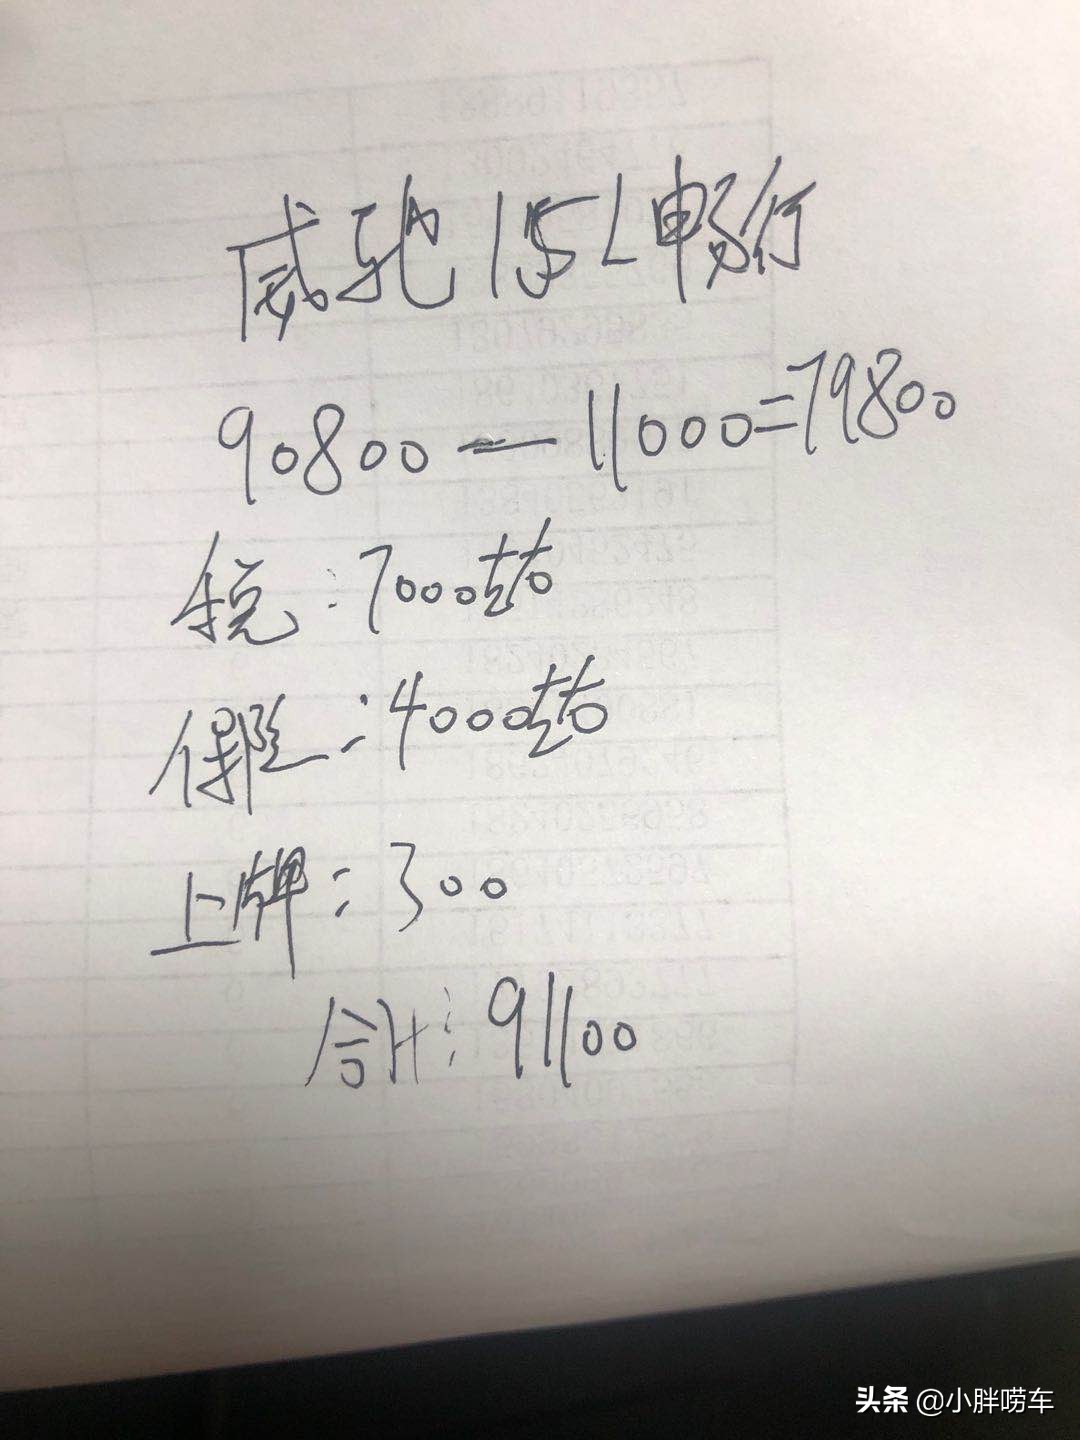 威驰15L畅行
90800-11000=79800
税:7000左右
保险:4000左右
上牌:300
合计:91100
头条 @小胖唠车